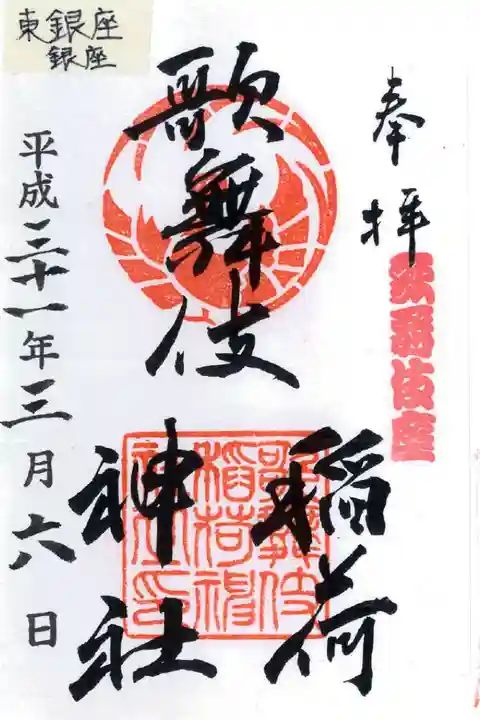 東銀座
銀座
奉拝
歌舞伎座
歌舞伎
稲荷
神社
歌舞伎
稲荷神
社之印
平成三十一年三月六日